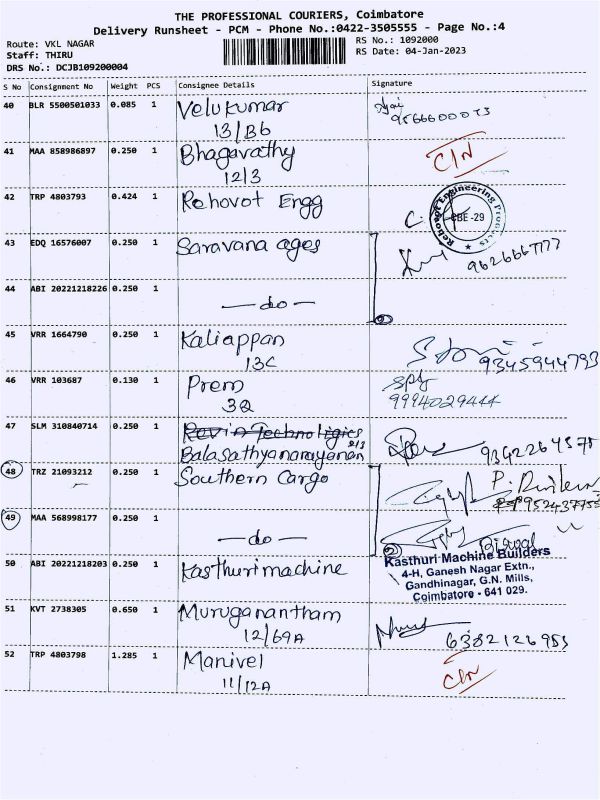 THE PROFESSIONAL COURIERS, Coimbatore
Delivery Runsheet - PCM - Phone No.:0422-3505555 - Page No.:4
Route: VKL NAGAR
Staff: THIRU
DRS No.: DCJB109200004
RS No.: 1092000
RS Date: 04-Jan-2023
S No Consignment No Weight PCS Consignee Details Signature
40 BLR 5500501033 0.085 1 Velukumar
13/B6
41 MAA 858986897 0.250 1 Bhagavathy
12/3
42 TRP 4803793 0.424 1 Rehovot Engg
Rehovot Engineering Products
CBE-29
43 EDQ 16576007 0.250 1 Saravana ages
9626667777
44 ABI 20221218226 0.250 1 —do—
45 VRR 1664790 0.250 1 Kaliappan
13C 9345944793
46 VRR 103687 0.130 1 Prem
3Q 9994029444
47 SLM 310840714 0.250 1
Balasathyanarayanan 9342264575
48 TRZ 21093212 0.250 1 Southern Cargo
49 MAA 568998177 0.250 1 —do—
50 ABI 20221218203 0.250 1 Kasthuri machine
Kasthuri Machine Builders
4-H, Ganesh Nagar Extn.,
Gandhinagar, G.N. Mills,
Coimbatore - 641 029.
51 KVT 2738305 0.650 1 Muruganantham
12/69A 6382126953
52 TRP 4803798 1.285 1 Manivel
11/12A